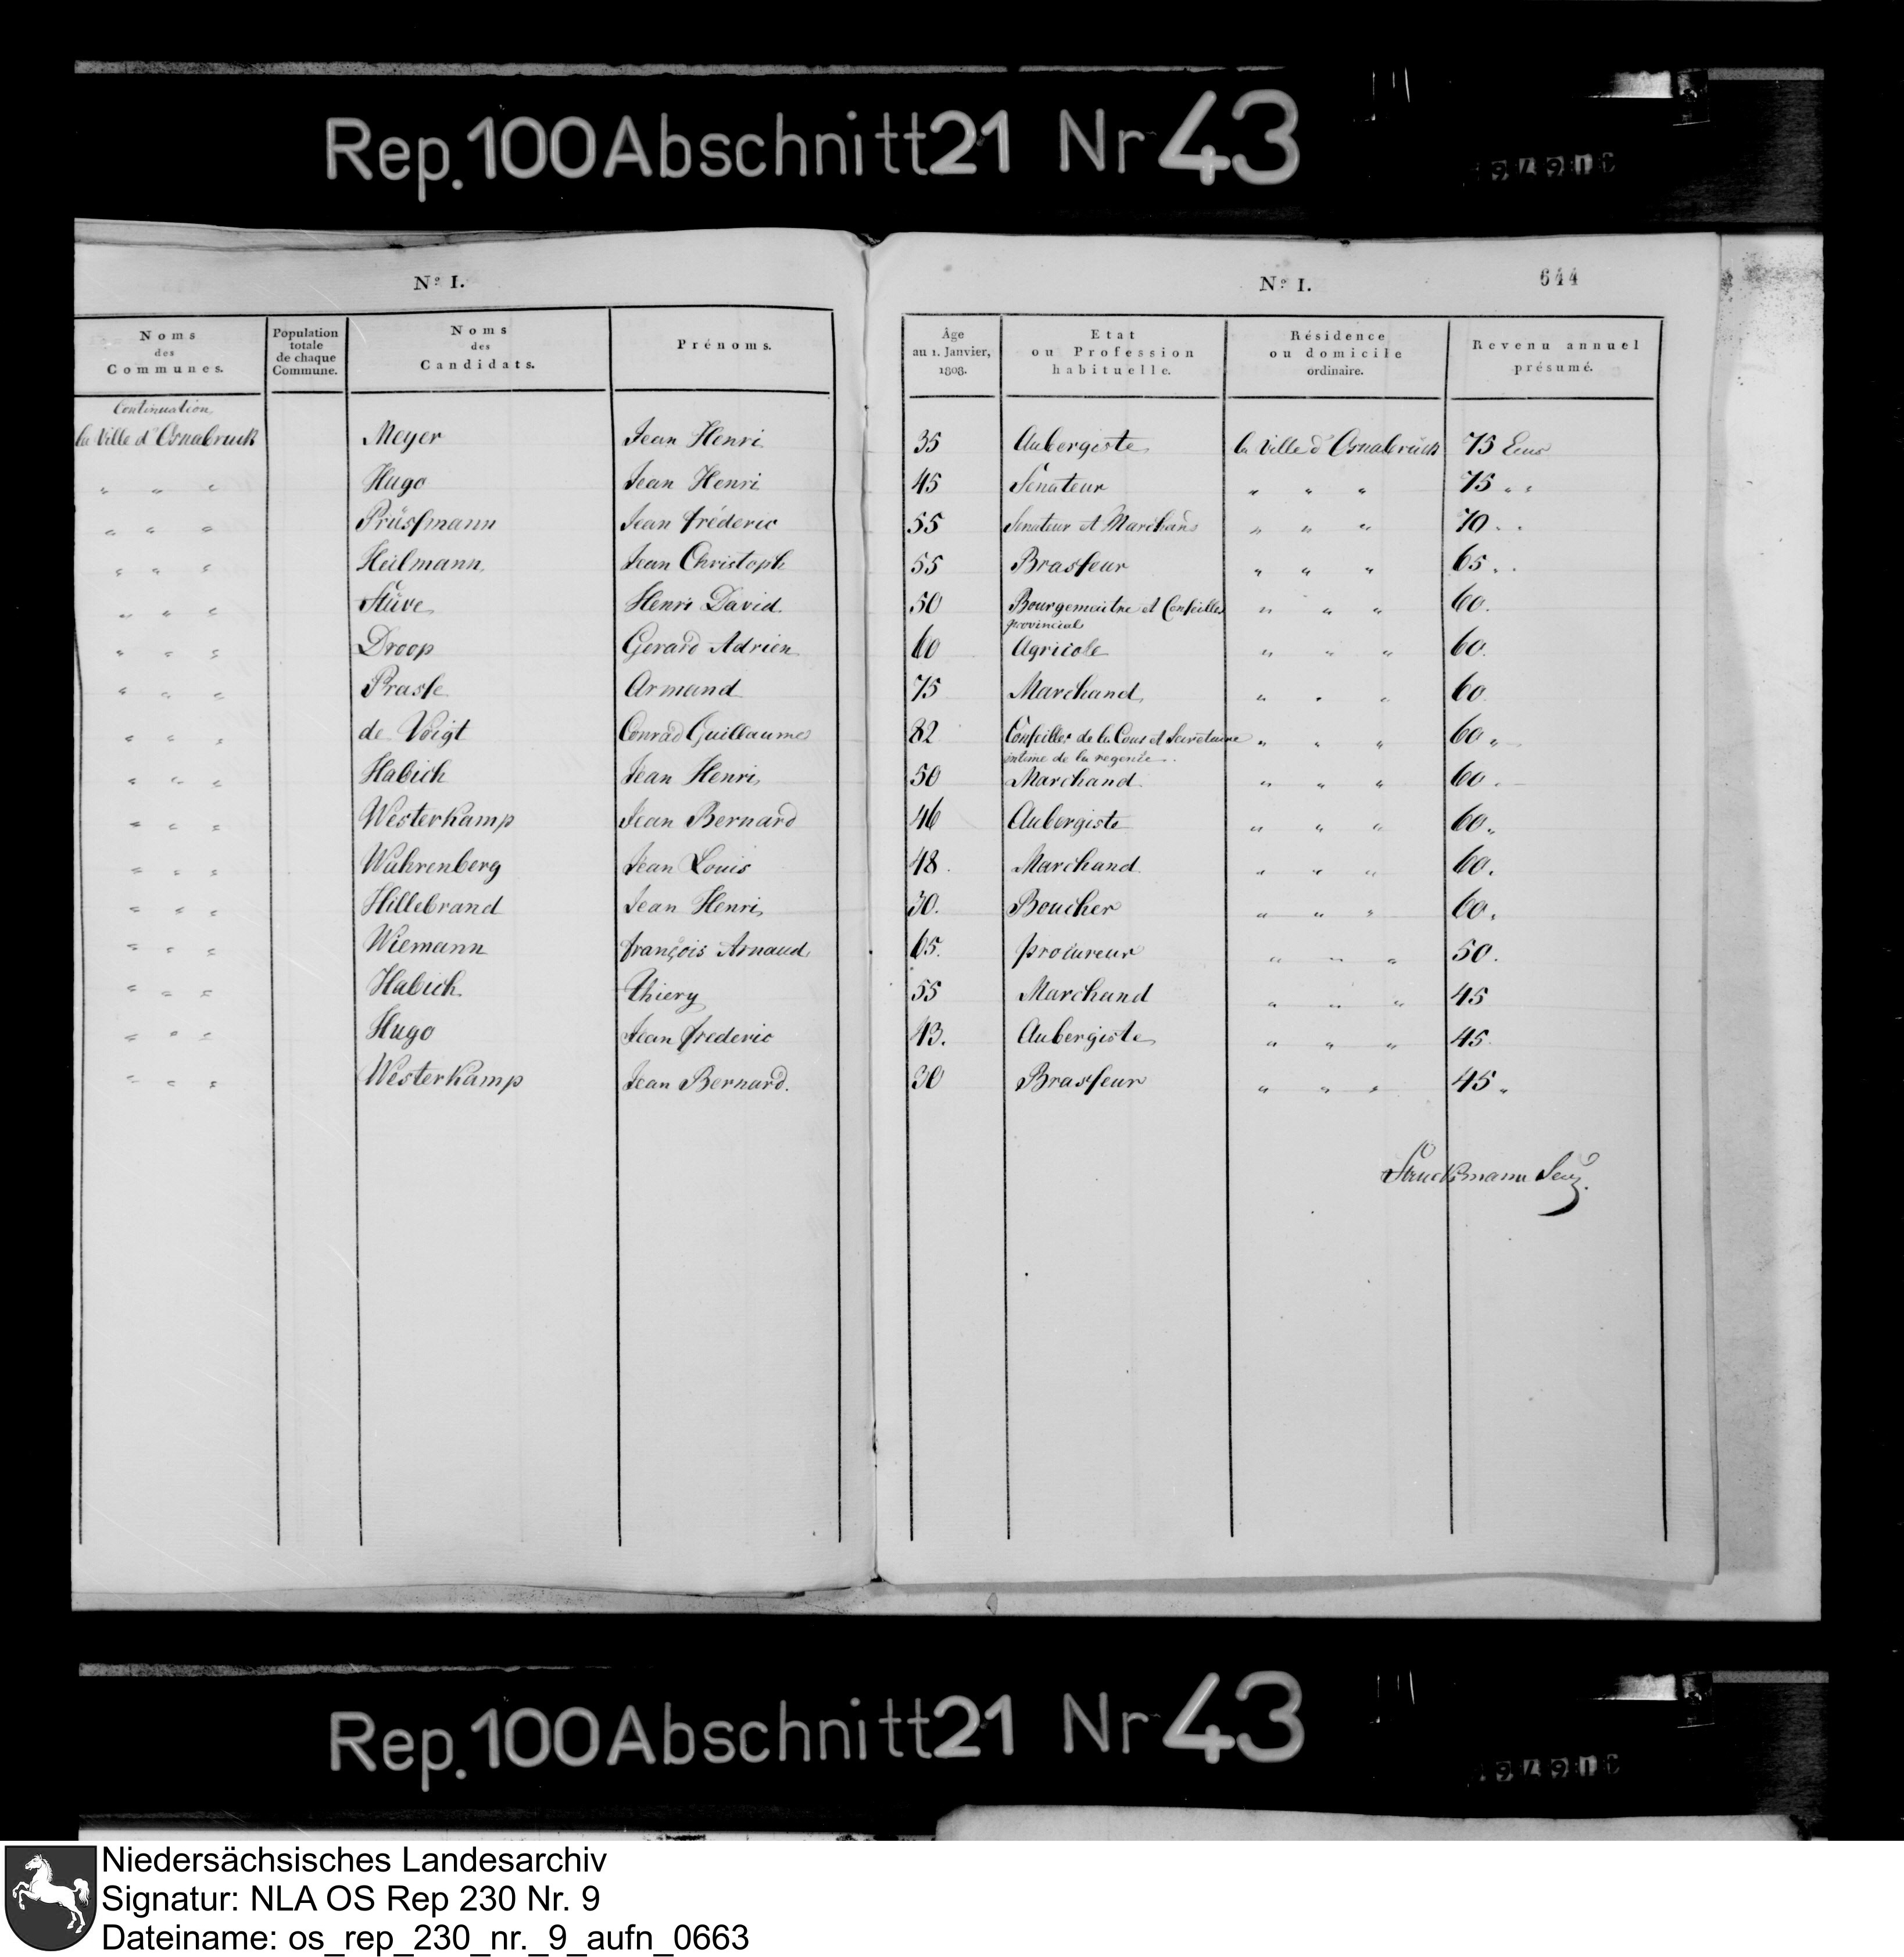 Rep. 100 Abschnitt 21 Nr 43
No. I.
Noms des Communes.
Population totale de chaque Commune.
Noms des Candidats.
Prénoms.
No. I.
644
Âge au 1. Janvier, 1808.
Etat ou Profession habituelle.
Résidence ou domicile ordinaire.
Revenu annuel présumé.
Continuation
la Ville d'Osnabruck Meyer Jean Henri 35 Aubergiste la Ville d'Osnabrück 75 Ecus
" " " Hugo Jean Henri 45 Senateur " " " 75 " "
" " " Prüssmann Jean fréderic 55 Senateur et Marchand " " " 70 " "
" " " Heilmann Jean Christoph 55 Brasseur " " " 65 " "
" " " Stüve Henri David. 50 Bourgemaitre et Conseiller provincial " " " 60.
" " " Droop Gerard Adrien 60 Agricole " " " 60.
" " " Prasse Armand 75 Marchand " " " 60
" " " de Voigt Conrad Guillaume 82 Conseiller de la Cour et Secretaire intime de la regence. " " " 60 "
" " " Habich Jean Henri 50 Marchand " " " 60 "
" " " Westerkamp Jean Bernard 46 Aubergiste " " " 60 "
" " " Wahrenberg Jean Louis 48 Marchand " " " 60.
" " " Hillebrand Jean Henri 30. Boucher " " " 60.
" " " Wiemann françois Arnaud 65. procureur " " " 50.
" " " Habich Thiery 55 Marchand " " " 45
" " " Hugo Jean frederic 43. Aubergiste " " " 45
" " " Westerkamp Jean Bernard. 30 Brasseur " " " 45 "
Struckmann
Rep. 100 Abschnitt 21 Nr 43
Niedersächsisches Landesarchiv
Signatur: NLA OS Rep 230 Nr. 9
Dateiname: os_rep_230_nr._9_aufn_0663